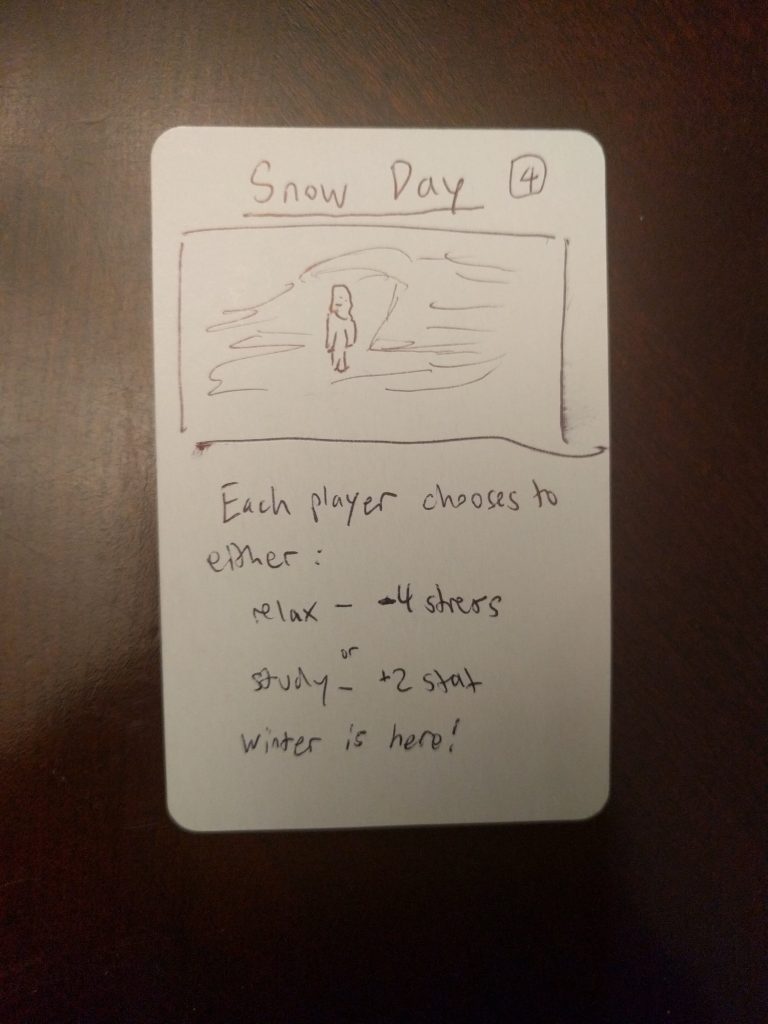 Snow Day 4
Each player chooses to
either:
relax - -4 stress
or
study - +2 stat
Winter is here!